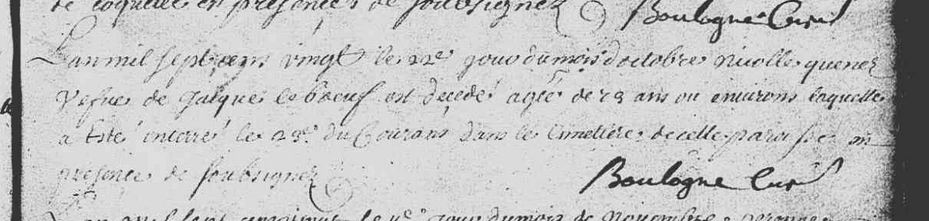 de laquelle en presence de soubsignez
Boulogne Curé
L'an mil sept cens vingt le 22e jour du mois d'octobre Nicolle quenez
vefve de Jacque le boeuf est decedé agée de ans ou environs laquelle
a esté enterré le 23e du Courans dans le Cimetiere de cette paroisse en
presence de soubsignez
Boulogne Curé
le jour du mois de Novembre